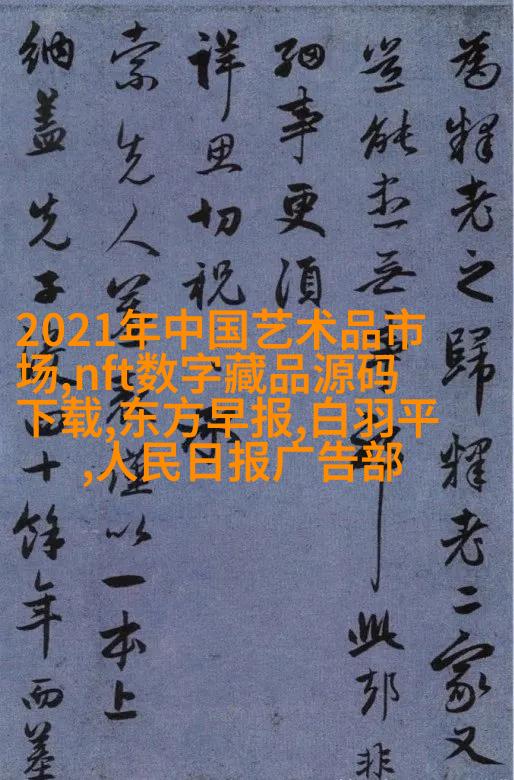 為釋老之歸釋老二家又
豈能無此却非
細事更須
詳思切祝
索先人墓謹以一本上
納蓋先子四十餘年而墓
2021年中国艺术品市
场,nft数字藏品源码
下载,东方早报,白羽平
,人民日报广告部